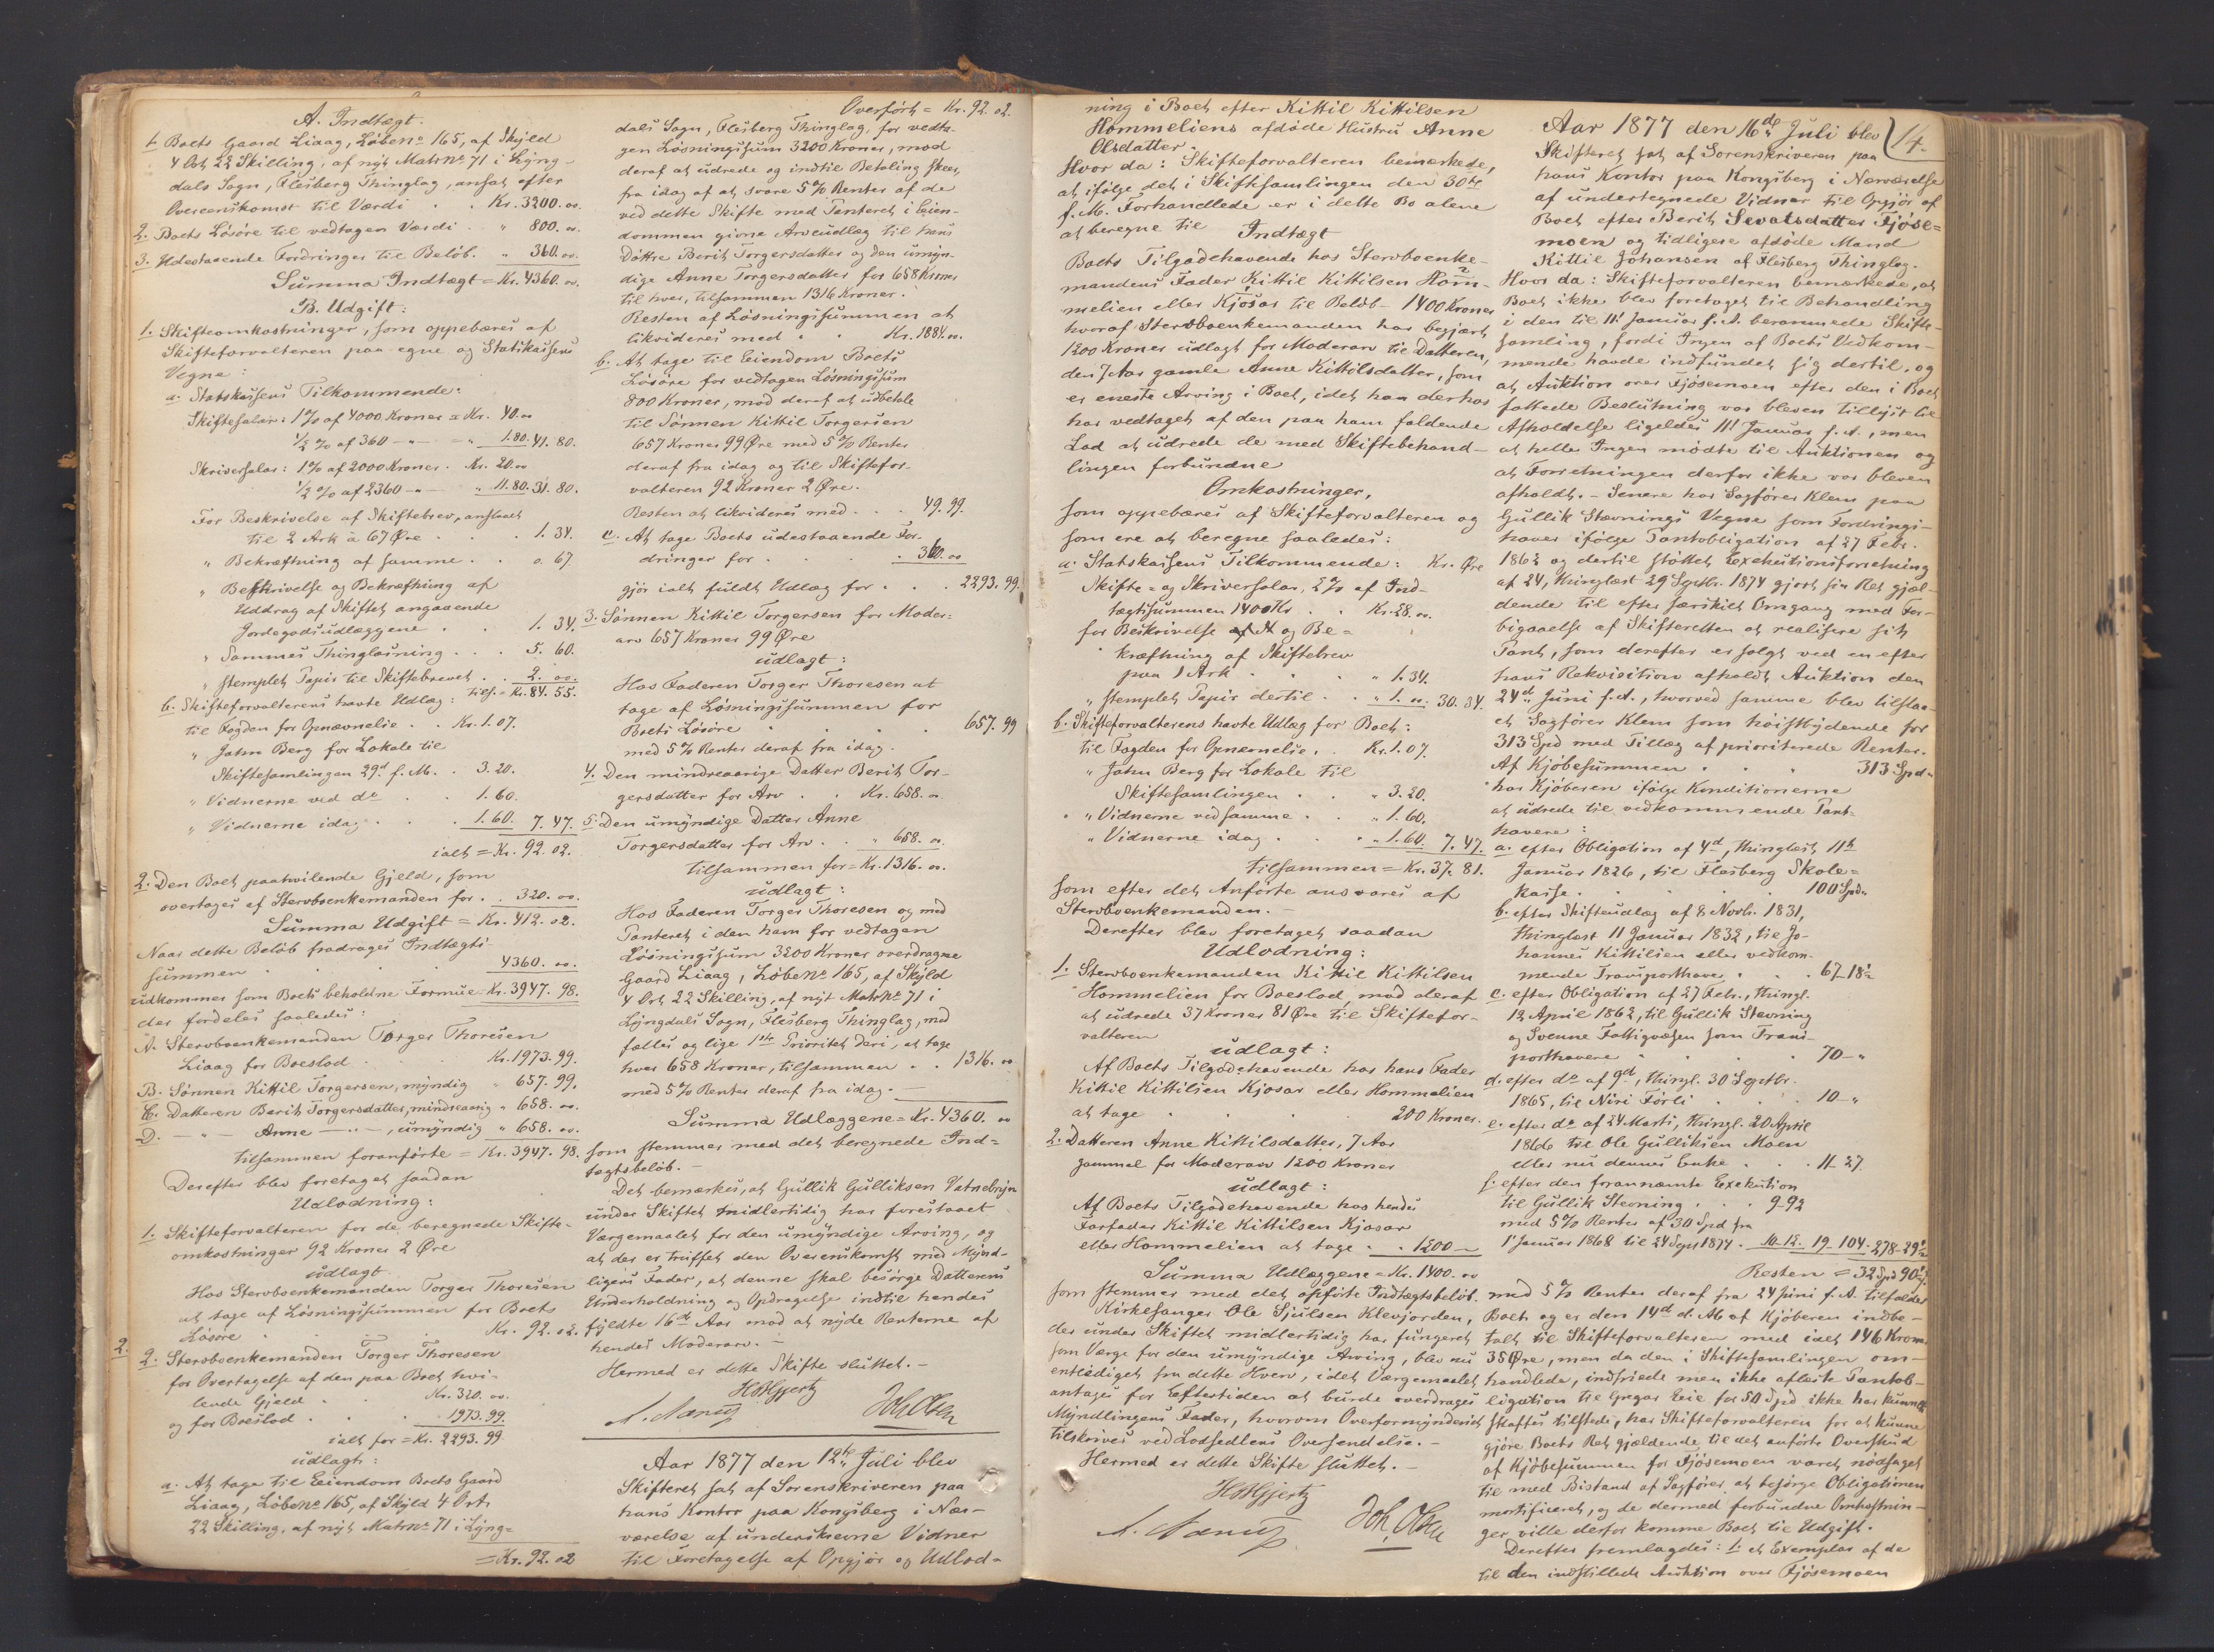 A. Indtægt.
1. Boets Gaard Liaag, Løbeno 165, af Skyld
4 Ort 22 Skilling, af nyt MatrNo 71 i Lyng-
dals Sogn, Flesberg Thinglag, ansat efter
Overenskomst til Værdi . . Kr. 3200. 00.
2. Boets Løsøre til vedtagen Værdi . " 800. 00.
3. Udestaaende Fordringer til Beløb. " 360. 00.
Summa Indtægt = Kr. 4360. 00.
B. Udgift:
1. Skifteomkostninger, som oppebæres af
Skifteforvalteren paa egne og Statskassens
Vegne:
a. Statskassens Tilkommende:
Skiftesalær: 1% af 4000 Kroner = Kr. 40.00
½ % af 360 -"- = " 1.80. 41. 80.
Skriversalær: 1% af 2000 Kroner. Kr. 20.00
½ % af 2360 -"- " 11.80. 31. 80.
For Beskrivelse af Skiftebrev, anslaaet
til 2 Ark a 67 Øre . . . 1. 34.
" Bekræftning af samme . . 0. 67
" Beskrivelse og Bekræftning af
Uddrag af Skiftet angaaende
Jordegodsudlæggene . . 1. 34.
" Sammes Thinglæsning . . . 5. 60.
" stemplet Papir til Skiftebrevet . . 2. 00.
tils. = Kr. 84. 55.
b. Skifteforvalterens havte Udlæg:
til Fogden for Opnævnelse . . Kr. 1. 07.
" Jahn Berg for Lokale til
Skiftesamlingen 29d f. M. . 3. 20.
" Vidnerne ved do . . 1. 60.
" Vidnerne idag . . . 1.60. 7. 47.
ialt = Kr. 92. 02.
2. Den Boet paahvilende Gjeld, som
overtages af Stervboenkemanden for . . 320. 00.
Summa Udgift = Kr. 412. 02.
Naar dette Beløb fradrages Indtægts-
summen . . . . 4360. 00.
udkommer som Boets beholdne Formue Kr. 3947. 98.
der fordeles saaledes:
A. Stervboenkemanden Torger Thoresen
Liaag for Boeslod . . Kr. 1973. 99.
B. Sønnen Kittil Torgersen, myndig " 657. 99.
C. Datteren Berit Torgersdatter, mindreaarig " 658. 00.
D. -"- Anne -"-, umyndig " 658. 00.
tilsammen foranførte = Kr. 3947. 98.
Derefter blev foretaget saadan
Udlodning:
1. Skifteforvalteren for de beregnede Skifte-
omkostninger 92 Kroner 2 Øre
udlagt.
Hos Stervboenkemanden Torger Thoresen
at tage af Løsningssummen for Boets
Løsøre . . . Kr. 92. 02.
2. 2. Stervboenkemanden Torger Thoresen
for Overtagelse af den paa Boet hvi-
lende Gjeld . . Kr. 320. 00.
og for Boeslod . . . 1973. 99.
ialt for = Kr. 2293. 99
udlagt:
a. At tage til Eiendom Boets Gaard
Liaag, Løbeno 165, af Skyld 4 Ort
22 Skilling, af nyt MatrNo 71 i Lyng-
= Kr. 92. 02
Overført = Kr. 92. 02.
dals Sogn, Flesberg Thinglag, for vedta-
gen Løsningssum 3200 Kroner, mod
deraf at udrede og indtil Betaling skeer,
fra idag af at svare 5% Renter af de
ved dette Skifte med Panteret i Eien-
dommen givne Arveudlæg til hans
Døttre Berit Torgersdatter og den umyn-
dige Anne Torgersdatter for 658 Kroner
til hver, tilsammen 1316 Kroner.
Resten af Løsningssummen at
likvideres med . . Kr. 1884. 00.
b. At tage til Eiendom Boets
Løsøre for vedtagen Løsningssum
800 Kroner, mod deraf at udbetale
til Sønnen Kittil Torgersen
657 Kroner 99 Øre med 5% Renter
deraf fra idag og til Skiftefor-
valteren 92 Kroner 2 Øre.
Resten at likvideres med . . . 49. 99.
c. At tage Boets udestaaende For-
dringer for . . . . 360. 00
gjør ialt fuldt Udlæg for . . . 2293. 99.
3. Sønnen Kittil Torgersen for Moder-
arv 657 Kroner 99 Øre
udlagt:
Hos Faderen Torger Thoresen at
tage af Løsningssummen for
Boets Løsøre . . . . 657. 99
med 5% Renter deraf fra idag.
4. Den mindreaarige Datter Berit Tor-
gersdatter for Arv . . Kr. 658. 00.
5. Den umyndige Datter Anne
Torgersdatter for Arv . . " 658. 00.
tilsammen for = Kr. 1316. 00.
udlagt:
Hos Faderen Torger Thoresen og med
Panteret i den ham for vedtagen
Løsningssum 3200 Kroner overdragne
Gaard Liaag, LøbeNo 165, af Skyld
4 Ort, 22 Skilling, af nyt MatrNo 71 i
Lyngdals Sogn, Flesberg Thinglag, med
fælles og lige 1ste Prioritet deri, at tage
hver 658 Kroner, tilsammen . . 1316. 00
med 5% Renter deraf fra idag. —
Summa Udlæggene = Kr. 4360. 00
som stemmer med det beregnede Ind-
tægtsbeløb. —
Det bemærkes, at Gullik Gulliksen Vatnebryn
under Skiftet midlertidig har forestaaet
Værgemaalet for den umyndige Arving, og
at der er truffet den Overenskomst med Mynd-
ligens Fader, at denne skal besørge Datterens
Underholdning og Opdragelse indtil hendes
fyldte 16d Aar mod at nyde Renterne af
hendes Moderarv. —
Hermed er dette Skifte sluttet. —
Joh. Olsen
Aar 1877 den 12te Juli blev
Skifteret sat af Sorenskriveren paa
hans Kontor paa Kongsberg i Nær-
værelse af underskrevne Vidner
til Foretagelse af Opgjør og Udlod-
ning i Boet efter Kittil Kittilsen
Hommeliens afdøde Hustru Anne
Olsdatter.
Hvor da: Skifteforvalteren bemærkede,
at ifølge det i Skiftesamlingen den 30te
f. M. Forhandlede er i dette Bo alene
at beregne til
Indtægt
Boets Tilgodehavende hos Stervboenke-
mandens Fader Kittil Kittilsen Hom-
melien eller Kjøsar til Beløb - 1400 Kroner
hvoraf Stervboenkemanden har begjært
1200 Kroner udlagt for Moderarv til Datteren,
den 7 Aar gamle Anne Kittilsdatter, som
er eneste Arving i Boet, idet han derhos
har vedtaget af den paa ham faldende
Lod at udrede de med Skiftebehand-
lingen forbundne
Omkostninger,
som oppebæres af Skifteforvalteren og
som ere at beregne saaledes:
a. Statskassens Tilkommende: Kr. Øre
Skifte- og Skriversalær, 2% af Ind-
tægtssummen 1400 Kr . . Kr. 28. 00.
for Beskrivelse og Be-
kræftning af Skiftebrev
paa 1 Ark . . . " 1. 34.
" stemplet Papir dertil . . " 1. 00. 30. 34.
b. Skifteforvalterens havte Udlæg for Boet:
til Fogden for Opnævnelse . . Kr. 1. 07.
" Jahn Berg for Lokale til
Skiftesamlingen . . " 3. 20.
" Vidnerne ved samme . . " 1. 60.
" Vidnerne idag . . . " 1. 60. 7. 47.
tilsammen = Kr. 37. 81.
som efter det Anførte ansvares af
Stervboenkemanden. —
Derefter blev foretaget saadan
Udlodning:
1. Stervboenkemanden Kittil Kittilsen
Hommelien for Boeslod, mod deraf
at udrede 37 Kroner 81 Øre til Skiftefor-
valteren
udlagt:
Af Boets Tilgodehavende hos hans Fader
Kittil Kittilsen Kjøsar eller Hommelien
at tage . . . . 200 Kroner.
2. Datteren Anne Kittilsdatter, 7 Aar
gammel for Moderarv 1200 Kroner
udlagt:
Af Boets Tilgodehavende hos hendes
Farfader Kittil Kittilsen Kjøsar
eller Hommelien at tage . . 1200 —
Summa Udlæggene = Kr. 1400. 00
som stemmer med det opførte Indtægtsbeløb.
Kirkesanger Ole Sjulsen Klevjorden,
der under Skiftet midlertidig har fungeret
som Værge for den umyndige Arving, blev nu
entlediget fra dette Hverv, idet Værgemaalet
antages for Eftertiden at burde overdrages
Myndlingens Fader, hvorom Overformynderiet
tilskrives ved Lodsedlens Oversendelse. —
Hermed er dette Skifte sluttet. —
Joh. Olsen
14.
Aar 1877 den 16de Juli blev
Skifteret sat af Sorenskriveren paa
hans Kontor paa Kongsberg i Nærværelse
af undertegnede Vidner til Opgjør af
Boet efter Berit Sevatsdatter Fjøse-
moen og tidligere afdøde Mand
Kittil Johansen af Flesberg Thinglag.
Hvor da: Skifteforvalteren bemærkede, at
Boet ikke blev foretaget til Behandling
i den til 11' Januar f. A. berammede Skifte-
samling, fordi Ingen af Boets Vedkom-
mende havde indfundet sig dertil, og
at Auktion over Fjøsemoen efter den i Boet
fattede Beslutning var bleven tillyst til
Afholdelse ligeledes 11' Januar f. A., men
at heller Ingen mødte til Auktionen og
at Forretningen derfor ikke var bleven
afholdt. — Senere har Sagfører Klem paa
Gullik Stævnings Vegne som Fordrings-
haver ifølge Pantobligation af 27 Febr.
1862 og dertil støttet Exekutionsforretning
af 24, thinglæst 29 Septbr. 1874 gjort sin Ret gjæl-
dende til efter særskilt Omgang med For-
bigaaelse af Skifteretten at realisere sit
Pant, som derefter er solgt ved en efter
hans Rekvisition afholdt Auktion den
24d Juni f. A., hvorved samme blev tilslaa-
et Sagfører Klem som høistbydende for
313 Spd med Tillæg af prioriterede Renter.
Af Kjøbesummen . . . 313 Spd "
har Kjøberen ifølge Konditionerne
at udrede til vedkommende Pant-
havere:
a. efter Obligation af 4d, thinglæst 11te
Januar 1826, til Flesberg Skole-
kasse . . . . . 100 Spd "
b. efter Skifteudlæg af 8 Novb. 1831,
thinglæst 11 Januar 1832, til Jo-
hannes Kittilsen eller vedkom-
mende Transporthaver . . . 67-18½
c. efter Obligation af 27 Febr., thingl.
12 April 1862, til Gullik Stevning
og Svenne Fattigvæsen som Trans-
porthavere . . . . 70- "
d. efter do af 9d, thingl. 30 Septbr.
1865, til Niri Førli . . . 10- "
e. efter do af 24 Marts, thingl. 20 April
1866 til Ole Gulliksen Moen
eller nu dennes Enke . . . 11-27
f. efter den forannævnte Exekution
til Gullik Stevning . . . 9-92
med 5% Renter af 30 Spd fra
1' Januar 1868 til 24 Sept 1874 . 10-12. 19-104. 278-29½
Resten = 32 Spd 90½ s.
med 5% Renter deraf fra 24 Juni f. A. tilfalder
Boet og er den 14d d. M. af Kjøberen indbe-
talt til Skifteforvalteren med ialt 146 Kroner
35 Øre, men da den i Skiftesamlingen om-
handlede, indfriede men ikke aflæste Pantob-
ligation til Gregar Eie for 50 Spd ikke har kunnet
skaffes tilstede, har Skifteforvalteren for at kunne
gjøre Boets Ret gjældende til det anførte Overskud
af Kjøbesummen for Fjøsemoen været nødsaget
til med Bistand af Sagfører at besørge Obligationen
mortificeret, og de dermed forbundne Omkostnin-
ger ville derfor komme Boet til Udgift.
Derefter fremlagdes: 1. et Exemplar af de
til den indstillede Auktion over Fjøsemoen